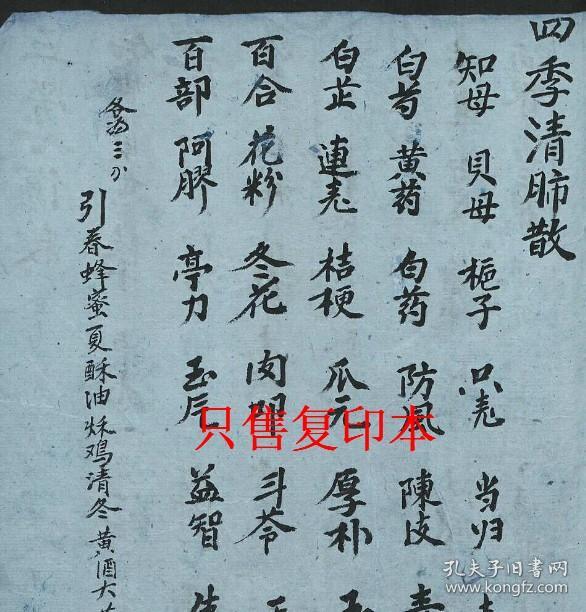 四季清肺散
知母 貝母 梔子 只壳 当归
白芍 黄药 白药 防風 陳皮
白芷 連壳 桔梗 瓜元 厚朴
百合 花粉 冬花 肉 斗苓
百部 阿膠 亭力 玉 益智
各 三分
引春蜂蜜夏酥油秌鸡清冬黄酒大
只售复印本
孔夫子旧书网
www.kongfz.com